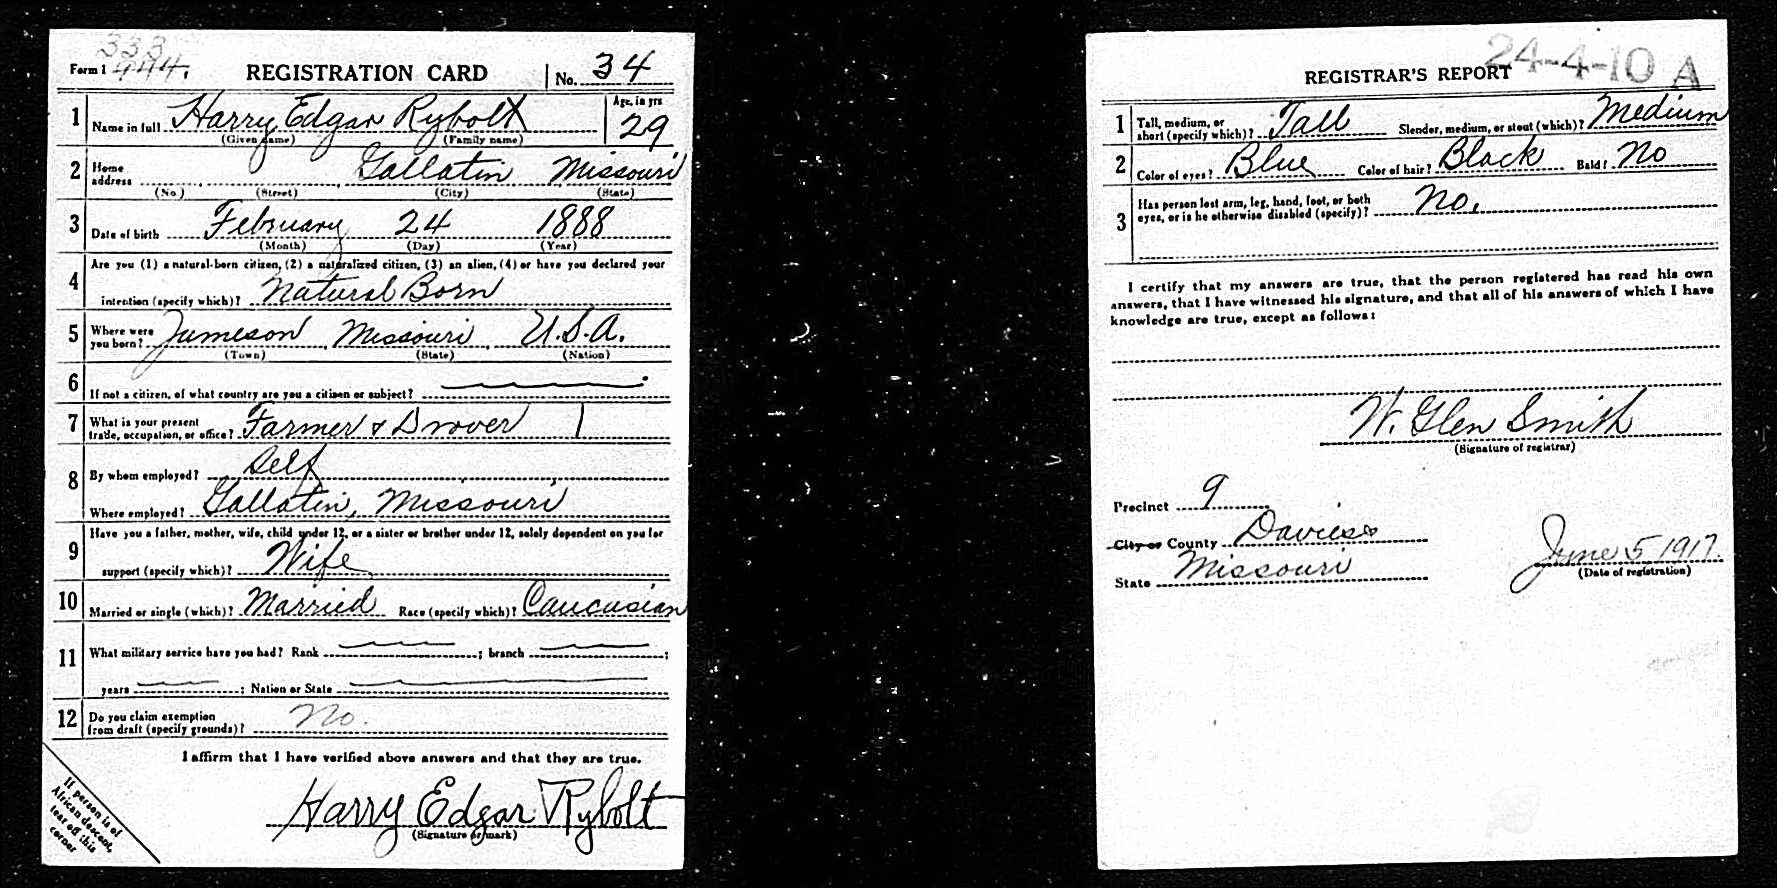 333
Form 1 444. REGISTRATION CARD No. 34
1 Name in full Harry Edgar Rybolt Age, in yrs 29
(Given name) (Family name)
2 Home address Gallatin Missouri
(No.) (Street) (City) (State)
3 Date of birth February 24 1888
(Month) (Day) (Year)
4 Are you (1) a natural-born citizen, (2) a naturalized citizen, (3) an alien, (4) or have you declared your
intention (specify which)? Natural Born
5 Where were you born? Jameson Missouri U.S.A.
(Town) (State) (Nation)
6 If not a citizen, of what country are you a citizen or subject?
7 What is your present trade, occupation, or office? Farmer & Drover
8 By whom employed? Self
Where employed? Gallatin, Missouri
9 Have you a father, mother, wife, child under 12, or a sister or brother under 12, solely dependent on you for
support (specify which)? Wife
10 Married or single (which)? Married Race (specify which)? Caucasian
11 What military service have you had? Rank ; branch ;
years ; Nation or State
12 Do you claim exemption from draft (specify grounds)? No.
I affirm that I have verified above answers and that they are true.
Harry Edgar Rybolt
(Signature or mark)
If person is of
African descent,
tear off this
corner
24-4-10 A
REGISTRAR'S REPORT
1 Tall, medium, or short (specify which)? Tall Slender, medium, or stout (which)? Medium
2 Color of eyes? Blue Color of hair? Black Bald? No
3 Has person lost arm, leg, hand, foot, or both eyes, or is he otherwise disabled (specify)? No.
I certify that my answers are true, that the person registered has read his own
answers, that I have witnessed his signature, and that all of his answers of which I have
knowledge are true, except as follows:
W. Glen Smith
(Signature of registrar)
Precinct 9
City or County Daviess
State Missouri June 5 1917.
(Date of registration)